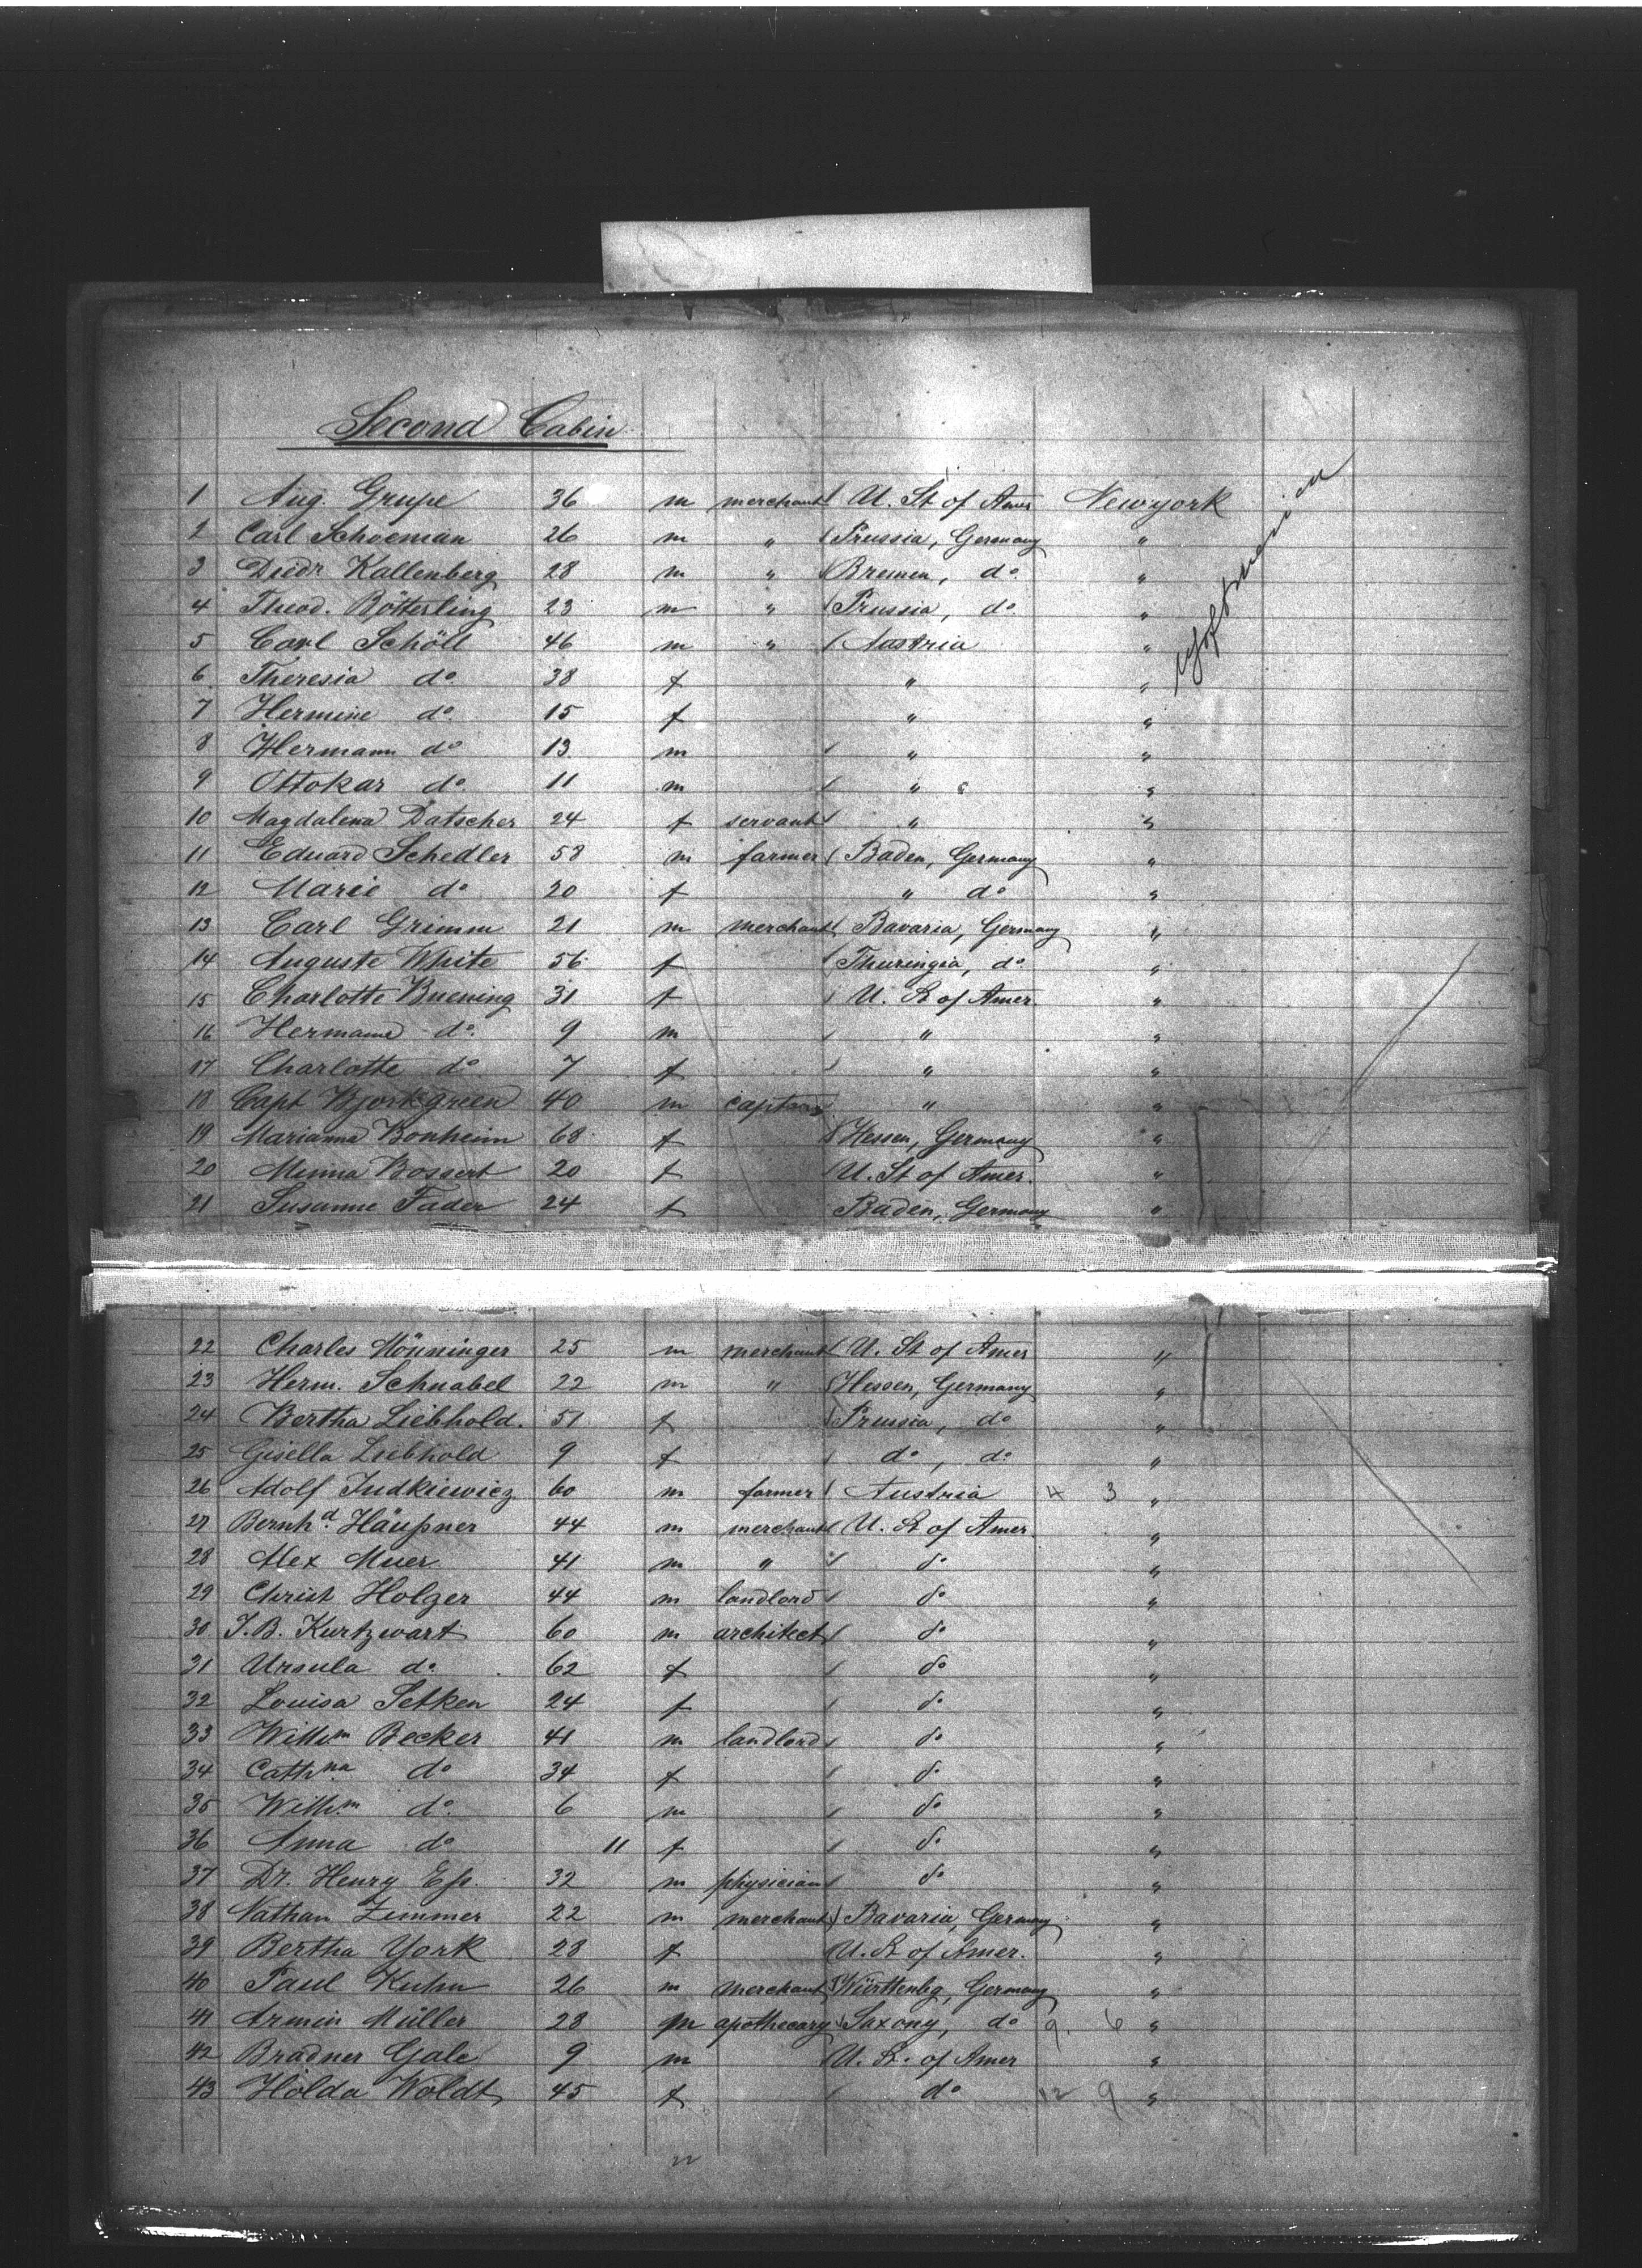 Second Cabin
1 Aug. Grupe 36 m merchant U. St of Amer Newyork
2 Carl Schoeman 26 m " Prussia, Germany "
3 Diedr Kallenberg 28 m " Bremen, do "
4 Theod. Bötterling 23 m " Prussia, do "
5 Carl Schöll 46 m " Austria "
6 Theresia do 38 f " "
7 Hermine do 15 f " "
8 Hermann do 13 m " "
9 Ottokar do 11 m " "
10 Magdalena Datscher 24 f servant " "
11 Eduard Schedler 58 m farmer Baden, Germany "
12 Marie do 20 f " do "
13 Carl Grimm 21 m merchant Bavaria, Germany "
14 Auguste White 56 f Thuringia, do "
15 Charlotte Buening 31 f U. St of Amer. "
16 Hermann do 9 m " "
17 Charlotte do 7 f " "
18 Capt Bjorkgreen 40 m captain " "
19 Marianna Bonheim 68 f Hessen, Germany "
20 Minna Bossert 20 f U. St of Amer. "
21 Susanne Fader 24 f Baden, Germany "
22 Charles Mönninger 25 m merchant U. St of Amer "
23 Herm. Schnabel 22 m " Hessen, Germany "
24 Bertha Liebhold. 51 f Prussia, do "
25 Gisella Liebhold 9 f do, do "
26 Adolf Judkiewicz 60 m farmer Austria 4 3 "
27 Bernhd Häußner 44 m merchant U. St of Amer. "
28 Alex Muer 41 m " do "
29 Christ Holzer 44 m landlord do "
30 J. B. Kurtzwart 60 m architect do "
31 Ursula do 62 f do "
32 Louisa Setken 24 f do "
33 Willhm Becker 41 m landlord do "
34 Cathna do 34 f do "
35 Willhm do 6 m do "
36 Anna do 11 f do "
37 Dr. Henry Eß. 32 m physician do "
38 Nathan Zimmer 22 m merchant Bavaria, Germany "
39 Bertha York 28 f U. St of Amer. "
40 Paul Kuhn 26 m merchant Württenbg, Germany "
41 Armin Müller 28 m apothecary Saxony, do 9. 6 "
42 Bradner Gale 9 m U. St. of Amer "
43 Holda Woldt 45 f do 12 9 "